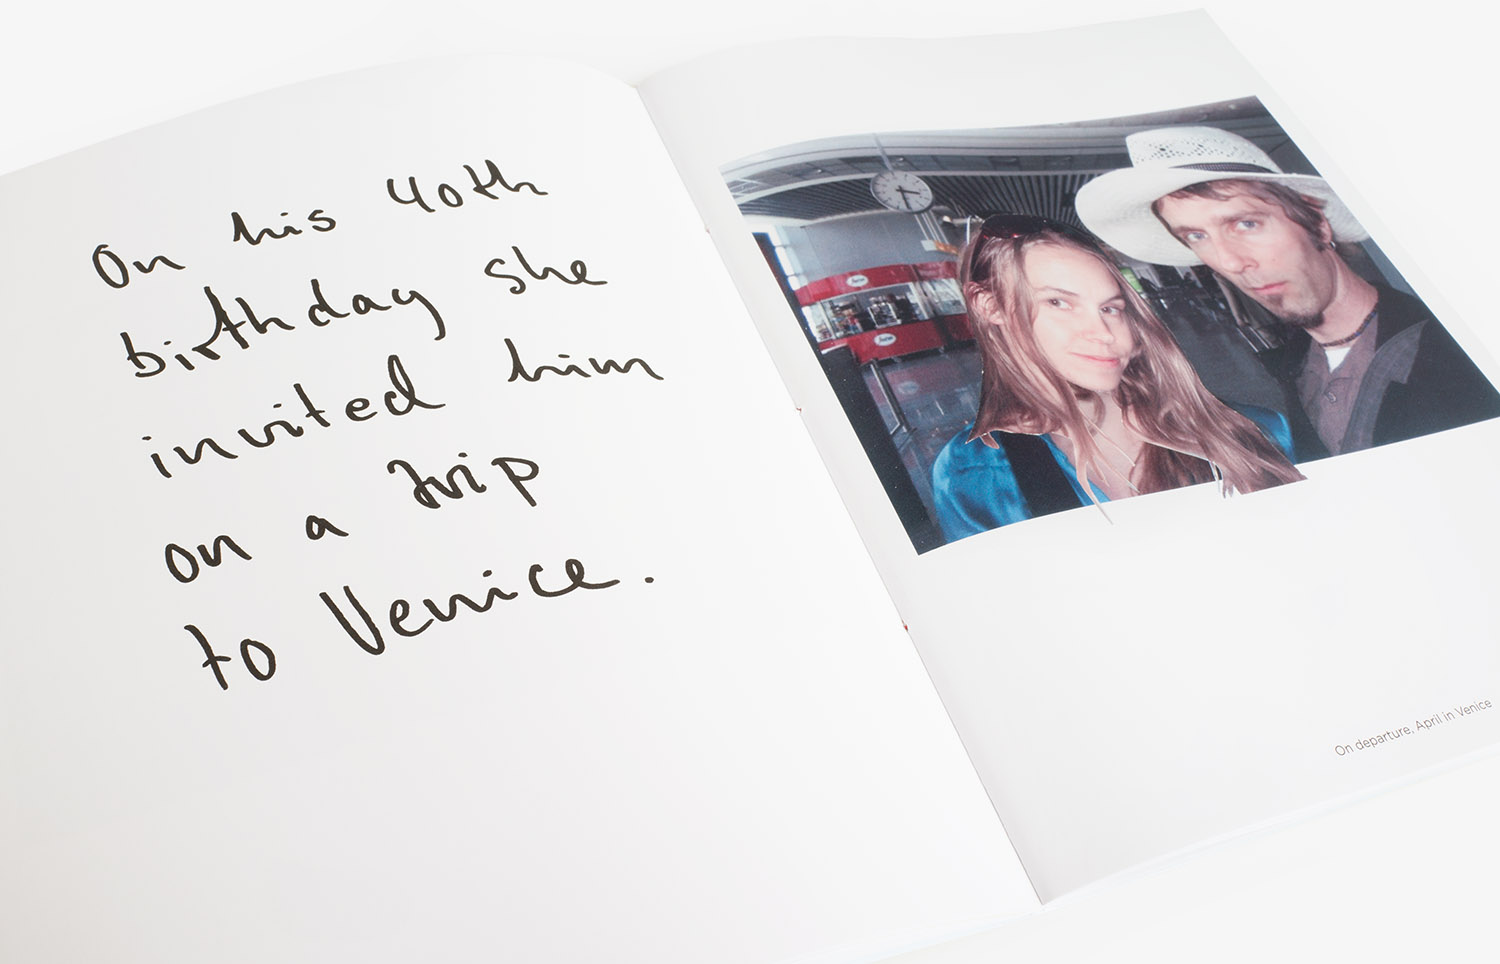 On his 40th
birthday she
invited him
on a trip
to Venice.
On departure, April in Venice